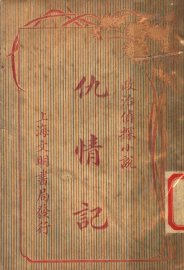 政治偵探小説
仇情記
上海文明書局發行